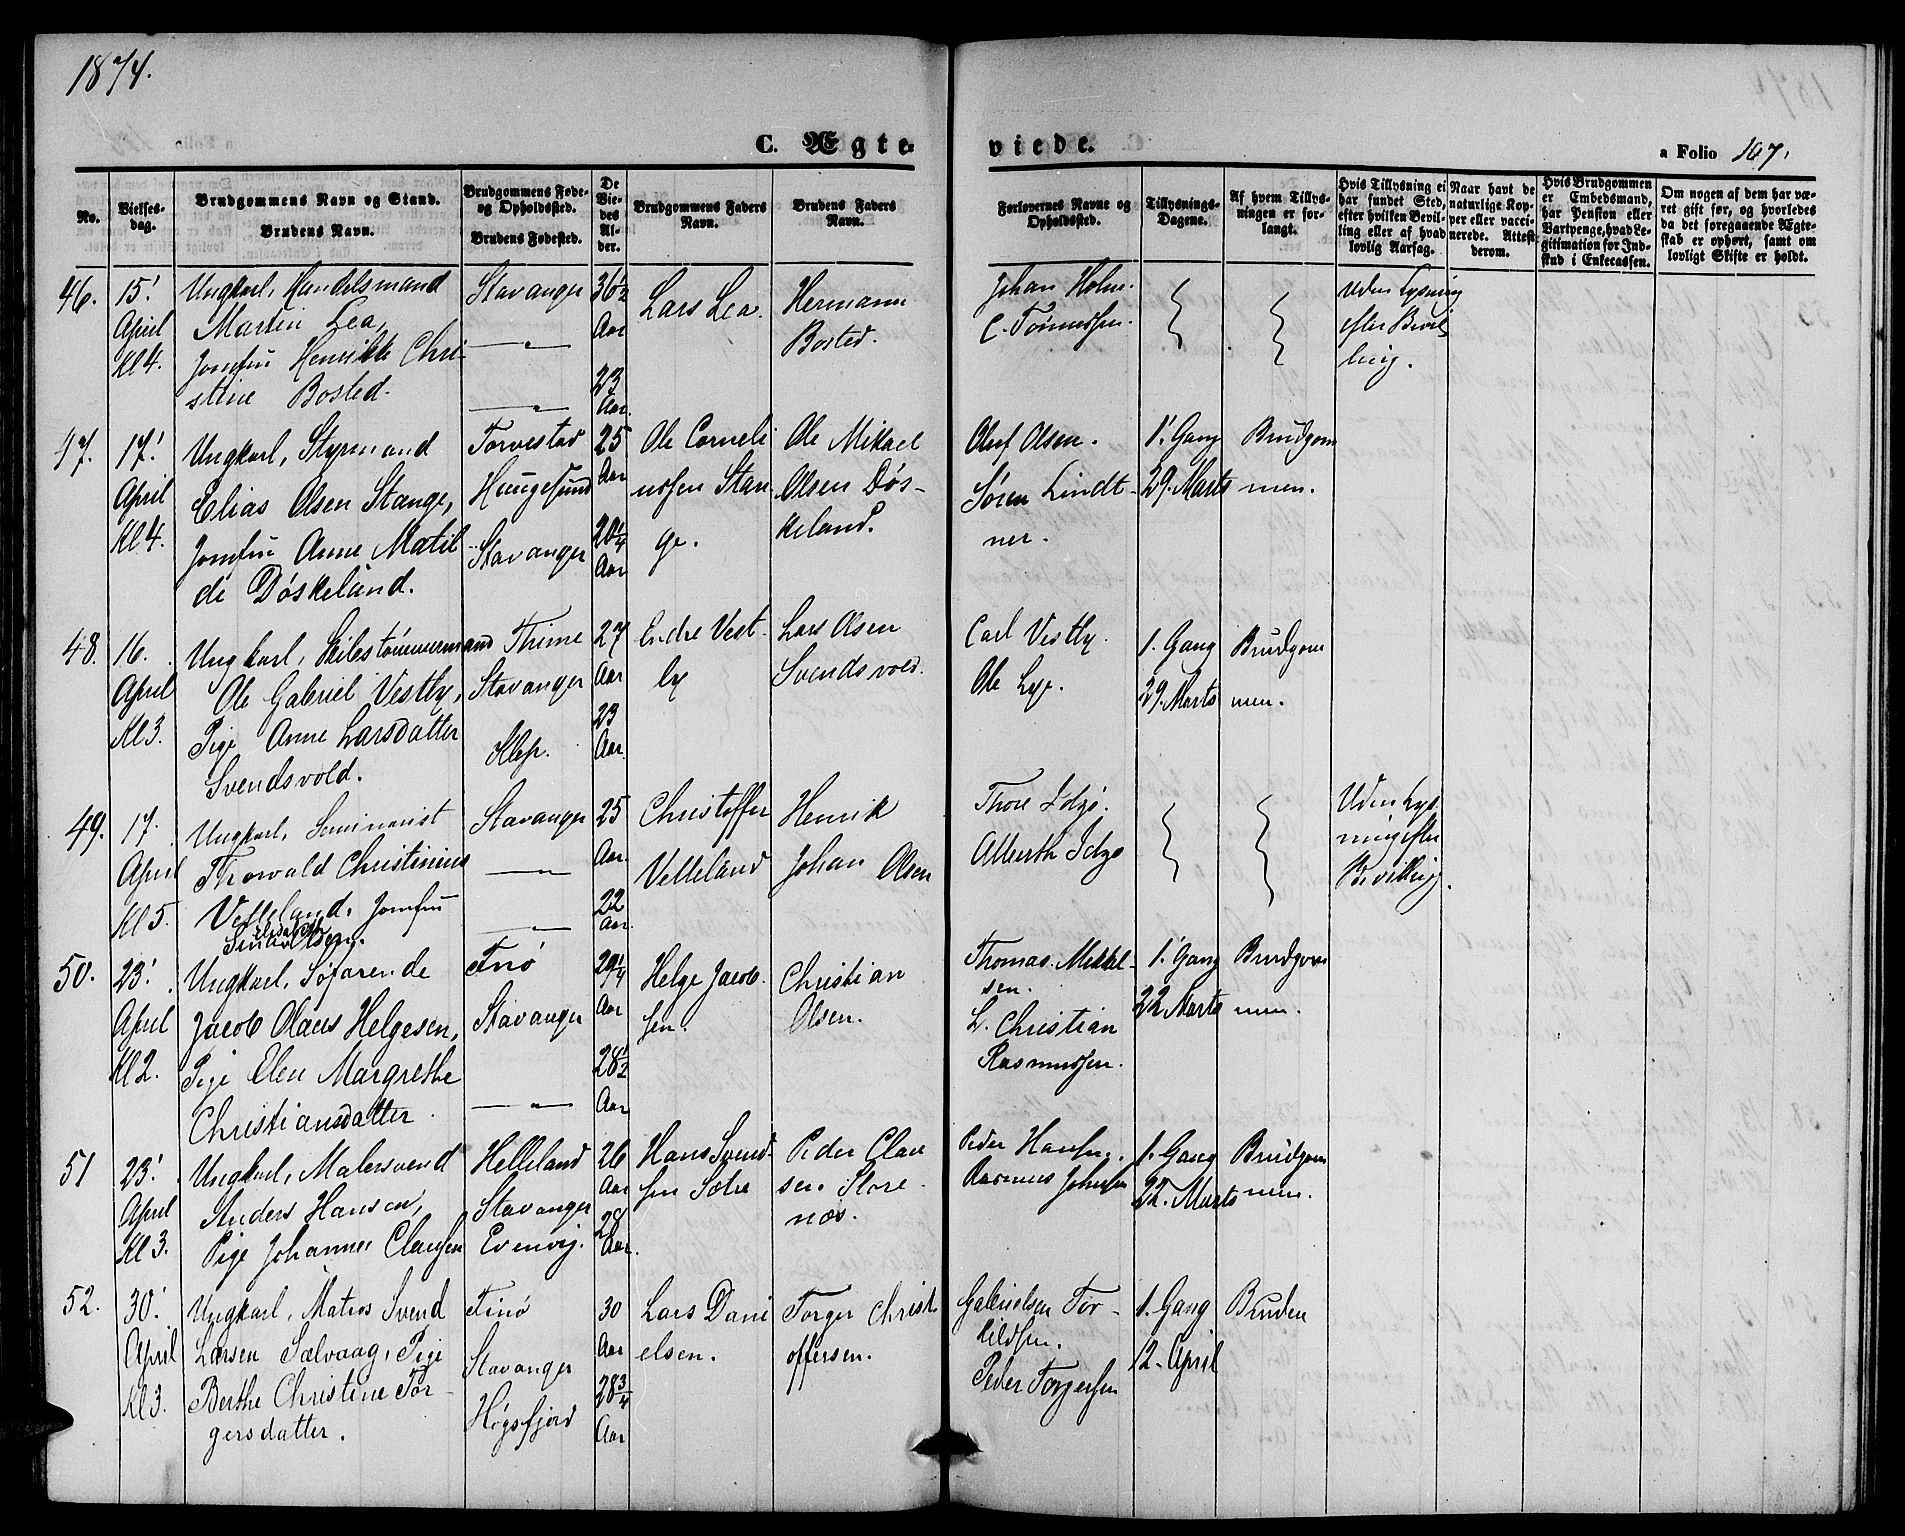 1874.
C. Ægte-
viede.
a Folio 167.
No.
Vielses-
dag.
Brudgommens Navn og Stand.
Brudens Navn.
Brudgommens Føde-
og Opholdssted.
Brudens Fødested.
De
Vie-
des
Al-
der.
Brudgommens Faders
Navn.
Brudens Faders
Navn.
Forlovernes Navne og
Opholdssted.
Tillysnings-
Dagene.
Af hvem Tillys-
ningen er for-
langt.
Hvis Tillysning ei
har fundet Sted,
efter hvilken Bevil-
ling eller af hvad
lovlig Aarsag.
Naar havt de
naturlige Kop-
per eller vacci-
nerede. Attest
derom.
Hvis Brudgommen
er Embedsmand,
har Pension eller
Vartpenge, hvad Le-
gitimation for Ind-
skud i Enkecassen.
Om nogen af dem har væ-
ret gift før, og hvorledes
da det foregaaende Ægte-
skab er ophørt, samt om
lovligt Skifte er holdt.
46.
15'
April
Kl 4.
Ungkarl, Handelsmand
Martin Lea,
Jomfru Henrikke Chri-
stine Bosted.
Stavanger
— " —
— " —
36 1/2
Aar
23
Aar.
Lars Lea.
Hermann
Bosted.
Johan Holm.
C. Tönnesen.
Uden Lysning
efter Bevil
ling.
47.
17'
April
Kl 4.
Ungkarl, Styrmand
Elias Olsen Stange,
Jomfru Anne Matil
de Døskeland.
Torvestad
Haugesund
Stavanger
25
Aar
20 1/4
Aar
Ole Corneli
ussen Stan
ge.
Ole Mikael
Olsen Døs-
keland.
Oluf Olsen.
Søren Lindt-
ner.
1' Gang
29. Marts
Brudgom
men.
48.
16.
April
Kl 3.
Ungkarl, Skibstømmermand
Ole Gabriel Vestly,
Pige Anne Larsdatter
Svendsvold.
Thime
Stavanger
Klep.
27
Aar
23
Aar.
Endre Vest
ly
Lars Olsen
Svendsvold.
Carl Vestly.
Ole Lye.
1. Gang
29. Marts
Brudgom
men.
49.
17.
April
Kl 5.
Ungkarl, Seminarist
Thorvald Christinius
Velleland. Jomfru
Elisabeth
Olsen.
Stavanger
— " —
— " —
25
Aar.
22
Aar.
Christoffer
Velleland
Henrik
Johan Olsen
Thore Idzø.
Alberth Idzø
Uden Lys
ning efter
Bevilling.
50.
23'
April
Kl 2.
Ungkarl, Søfarende
Jacob Olaus Helgesen,
Pige Elen Margrethe
Christiansdatter.
Finø
Stavanger
— " —
29 1/4
Aar
28 1/2
Aar
Helge Jacob
sen.
Christian
Olsen.
Thomas Mikkel-
sen.
L. Christian
Rasmussen.
1' Gang
22 Marts
Brudgom
men.
51
23'
April
Kl 3.
Ungkarl, Malersvend
Anders Hansen,
Pige Johanne Clausen
Helleland
Stavanger
Evenvig.
26
Aar
28
Aar.
Hans Svend-
sen Sætre
Peder Clau
sen Store
næs.
Peder Hansen.
Rasmus Johnsen
1. Gang
22. Marts
Brudgom
men.
52.
30'
April
Kl 3.
Ungkarl, Matros Svend
Larsen Sælvaag, Pige
Berthe Christine Tor-
gersdatter.
Finø
Stavanger
Høgsfjord
30
Aar
28 3/4
Aar
Lars Dani
elsen.
Torger Christ
offersen.
Gabrielsen Tor-
kildsen.
Peder Torgersen
1. Gang
12. April
Bruden